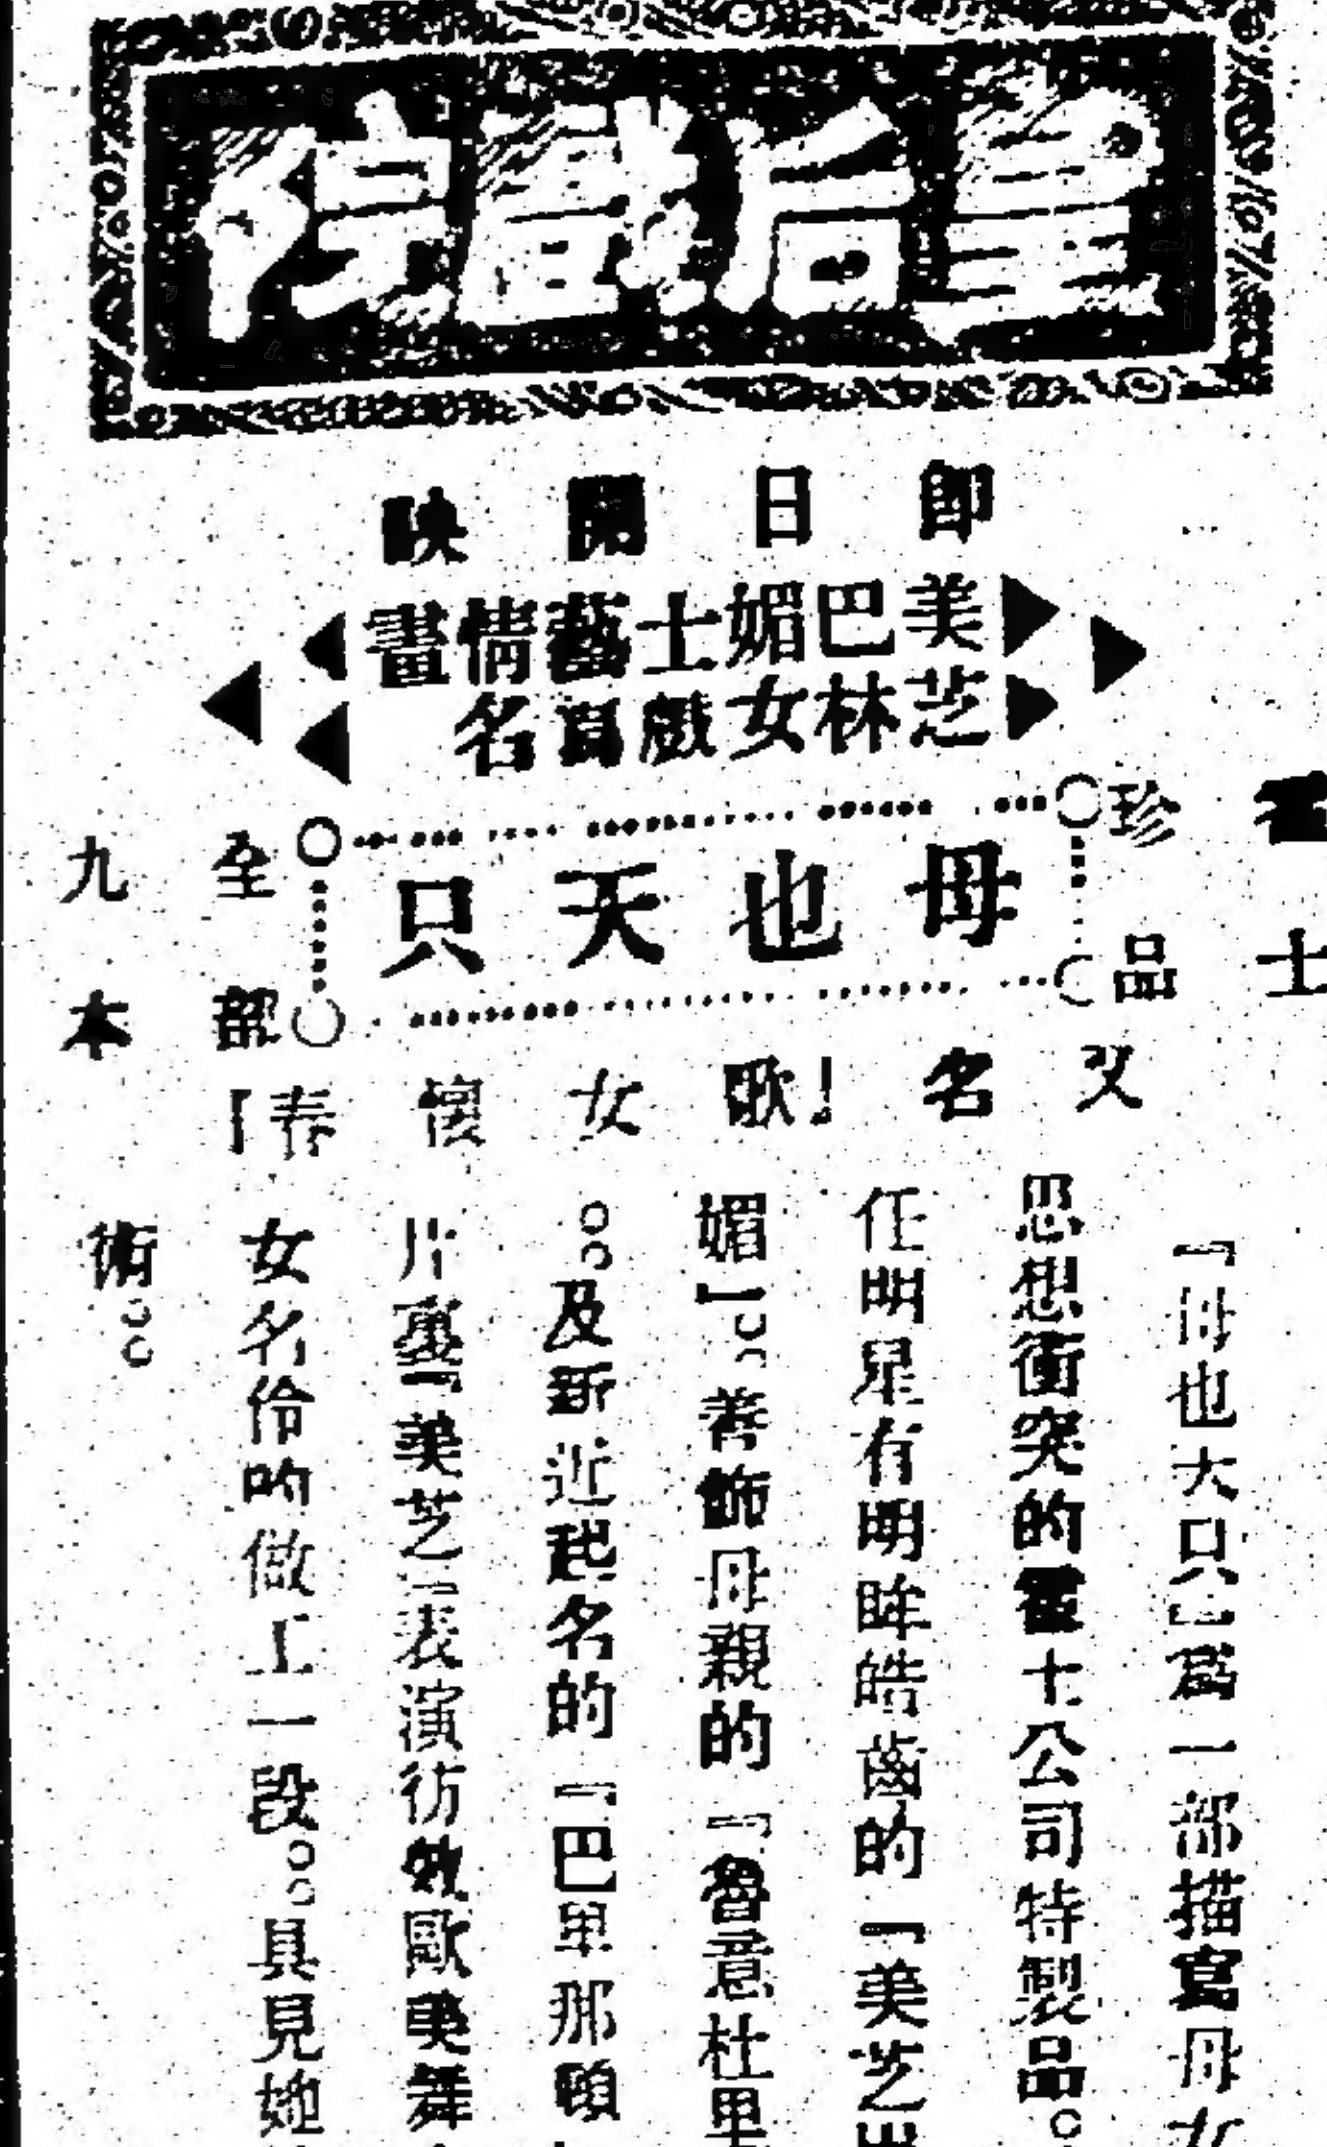 皇后戲院
即日開映
美巴媚士藝情畫
芝林女戲寫名
珍品
士
母也天只
全部
九本
又名！歌女懷春『
『母也天只』為一部描寫母女
思想衝突的霍士公司特製品。
任明星有明眸皓齒的『美芝
媚』。善飾母親的『魯意杜里
。及新近起名的『巴里那頓
片裏『美芝』表演彷效歐美舞
女名伶的做工一段。具見她
術。